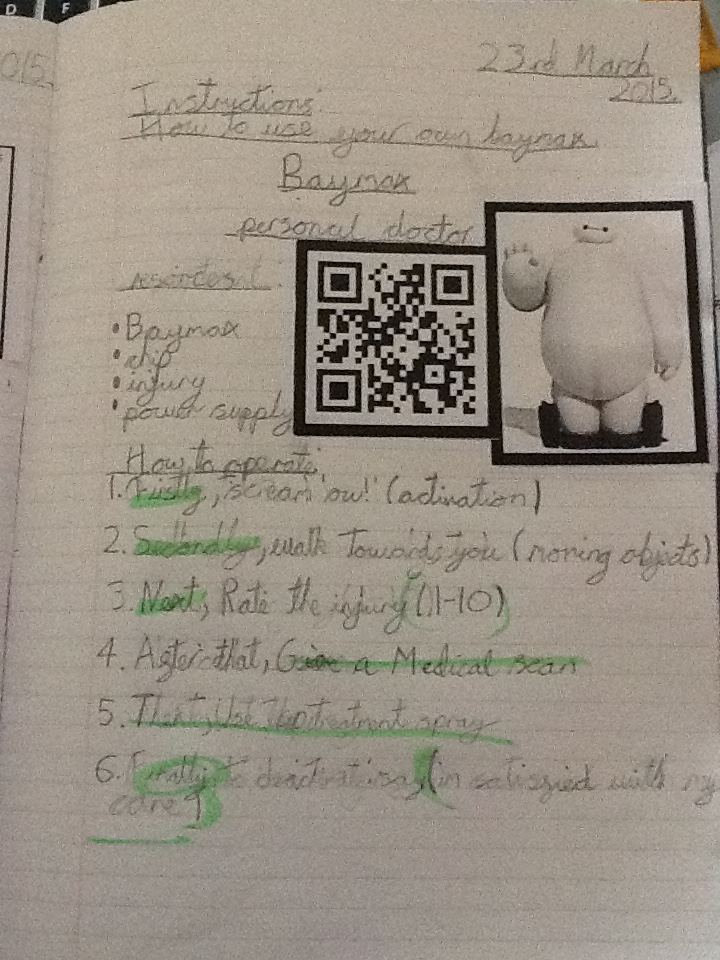 D F
015.
23rd March
2015.
Instructions:
How to use your own baymax.
Baymax
personal doctor
• Baymax
• chip
• injury
• power supply
How to operate:
1. Firstly, scream 'ow!' (activation)
2. Secondly, walk towards you (moving objects)
3. Next, Rate the injury (1-10)
4. After that, Give a Medical scan
5. the treatment spray
6. Finally to say in satisfied with my
care